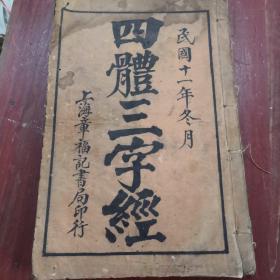 民國十一年冬月
四體三字經
上海章福記書局印行